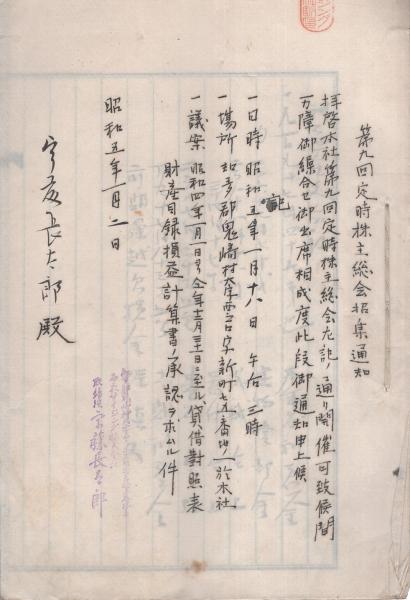 第九回定時株主総会招集通知
拝啓本社第九回定時株主総会左記ノ通リ開催可致候間
万障御繰合セ御出席相成度此段御通知申上候
記
一日時 昭和五年一月十八日 午后三時
一場所 知多郡鬼崎村 字新町七五番地ノ一 於本社
一議案 昭和四年一月一日ヨリ仝年十二月三十一日ニ至ル貸借対照表
財産目録損益計算書ノ承認ヲ求ムル件
昭和五年一月二日
長太郎殿
取締役 長太郎